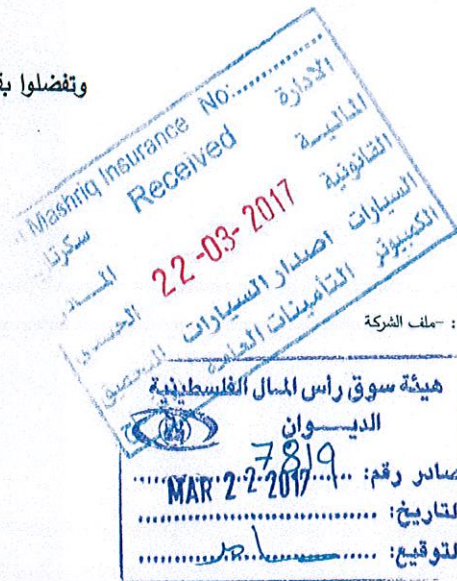 وتفضلوا بق
Mashriq Insurance No:
Received
22-03-2017
الادارة
المالية
القانونية
السيارات اصدار السيارات
الكمبيوتر التأمينات العامة
: -ملف الشركة
هيئة سوق راس المال الفلسطينية
الديوان
صادر رقم: 7819
MAR 2 2 2017
التاريخ:
التوقيع: